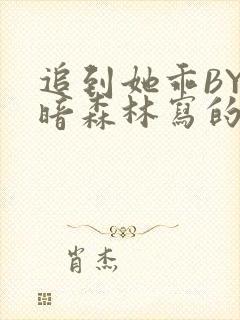 追到她乖BY
暗森林寫的
肖杰